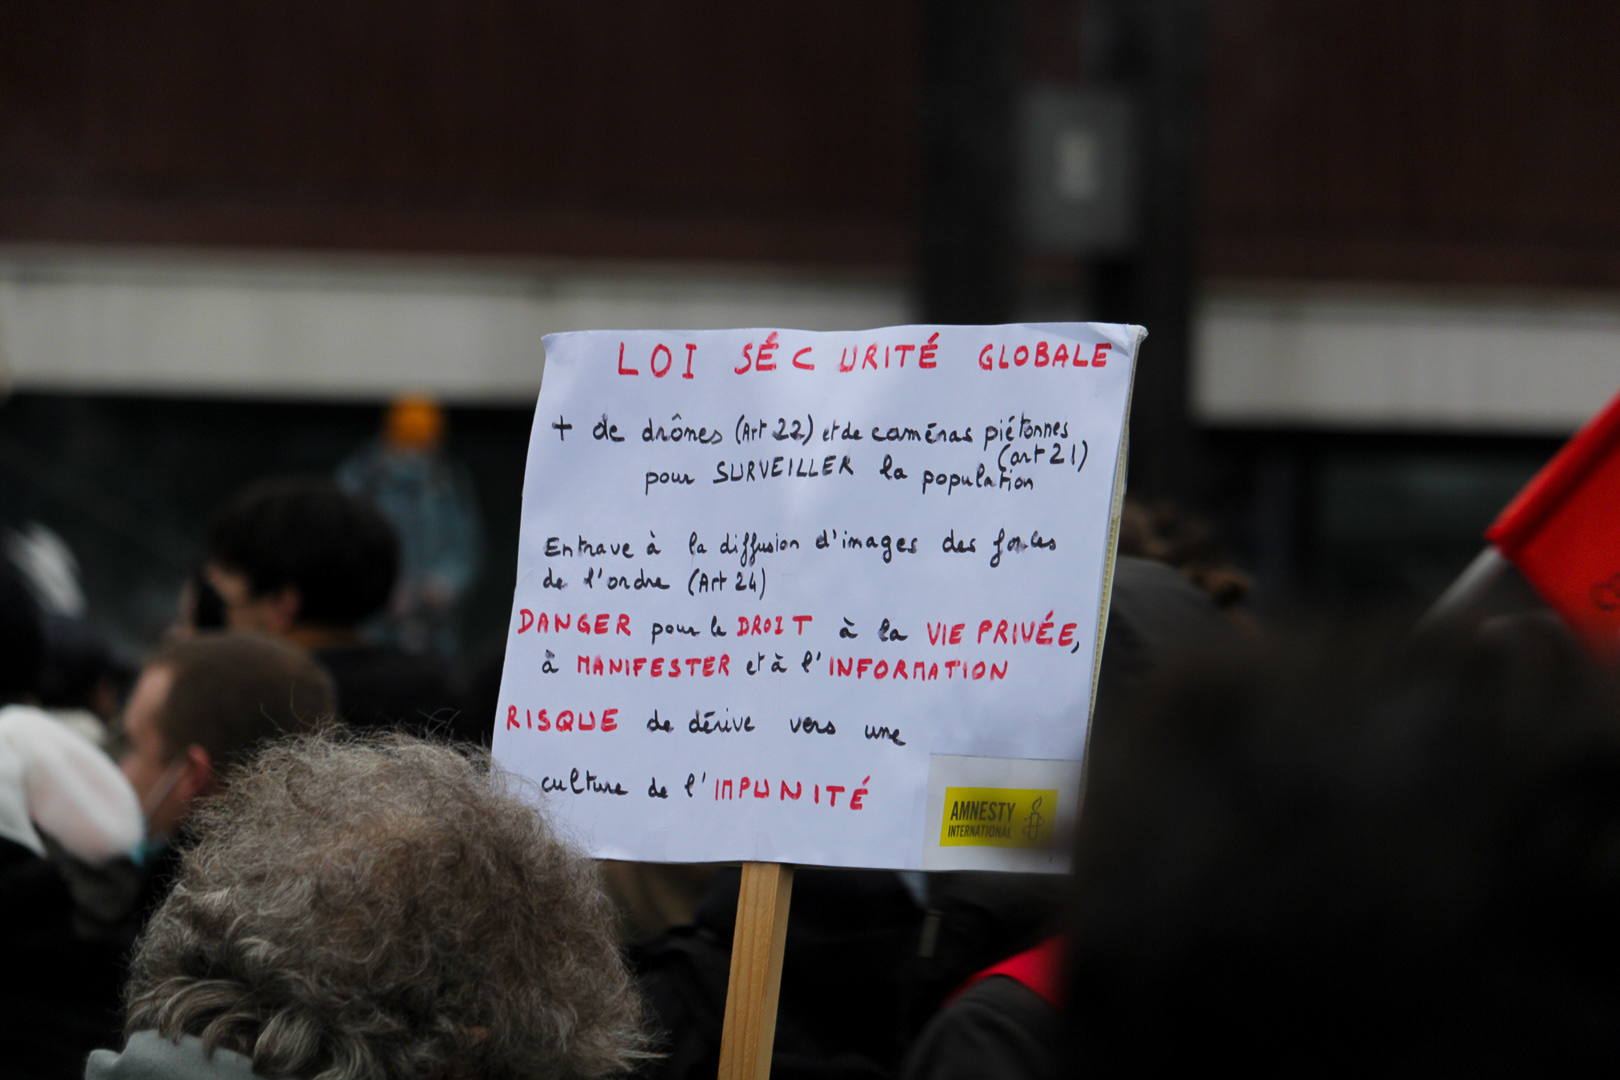 LOI SÉCURITÉ GLOBALE
+ de drônes (Art 22) et de caméras piétonnes
(art 21)
pour SURVEILLER la population
Entrave à la diffusion d'images des forces
de l'ordre (Art 24)
DANGER pour le DROIT à la VIE PRIVÉE,
à MANIFESTER et à l'INFORMATION
RISQUE de dérive vers une
culture de l'IMPUNITÉ
AMNESTY
INTERNATIONAL